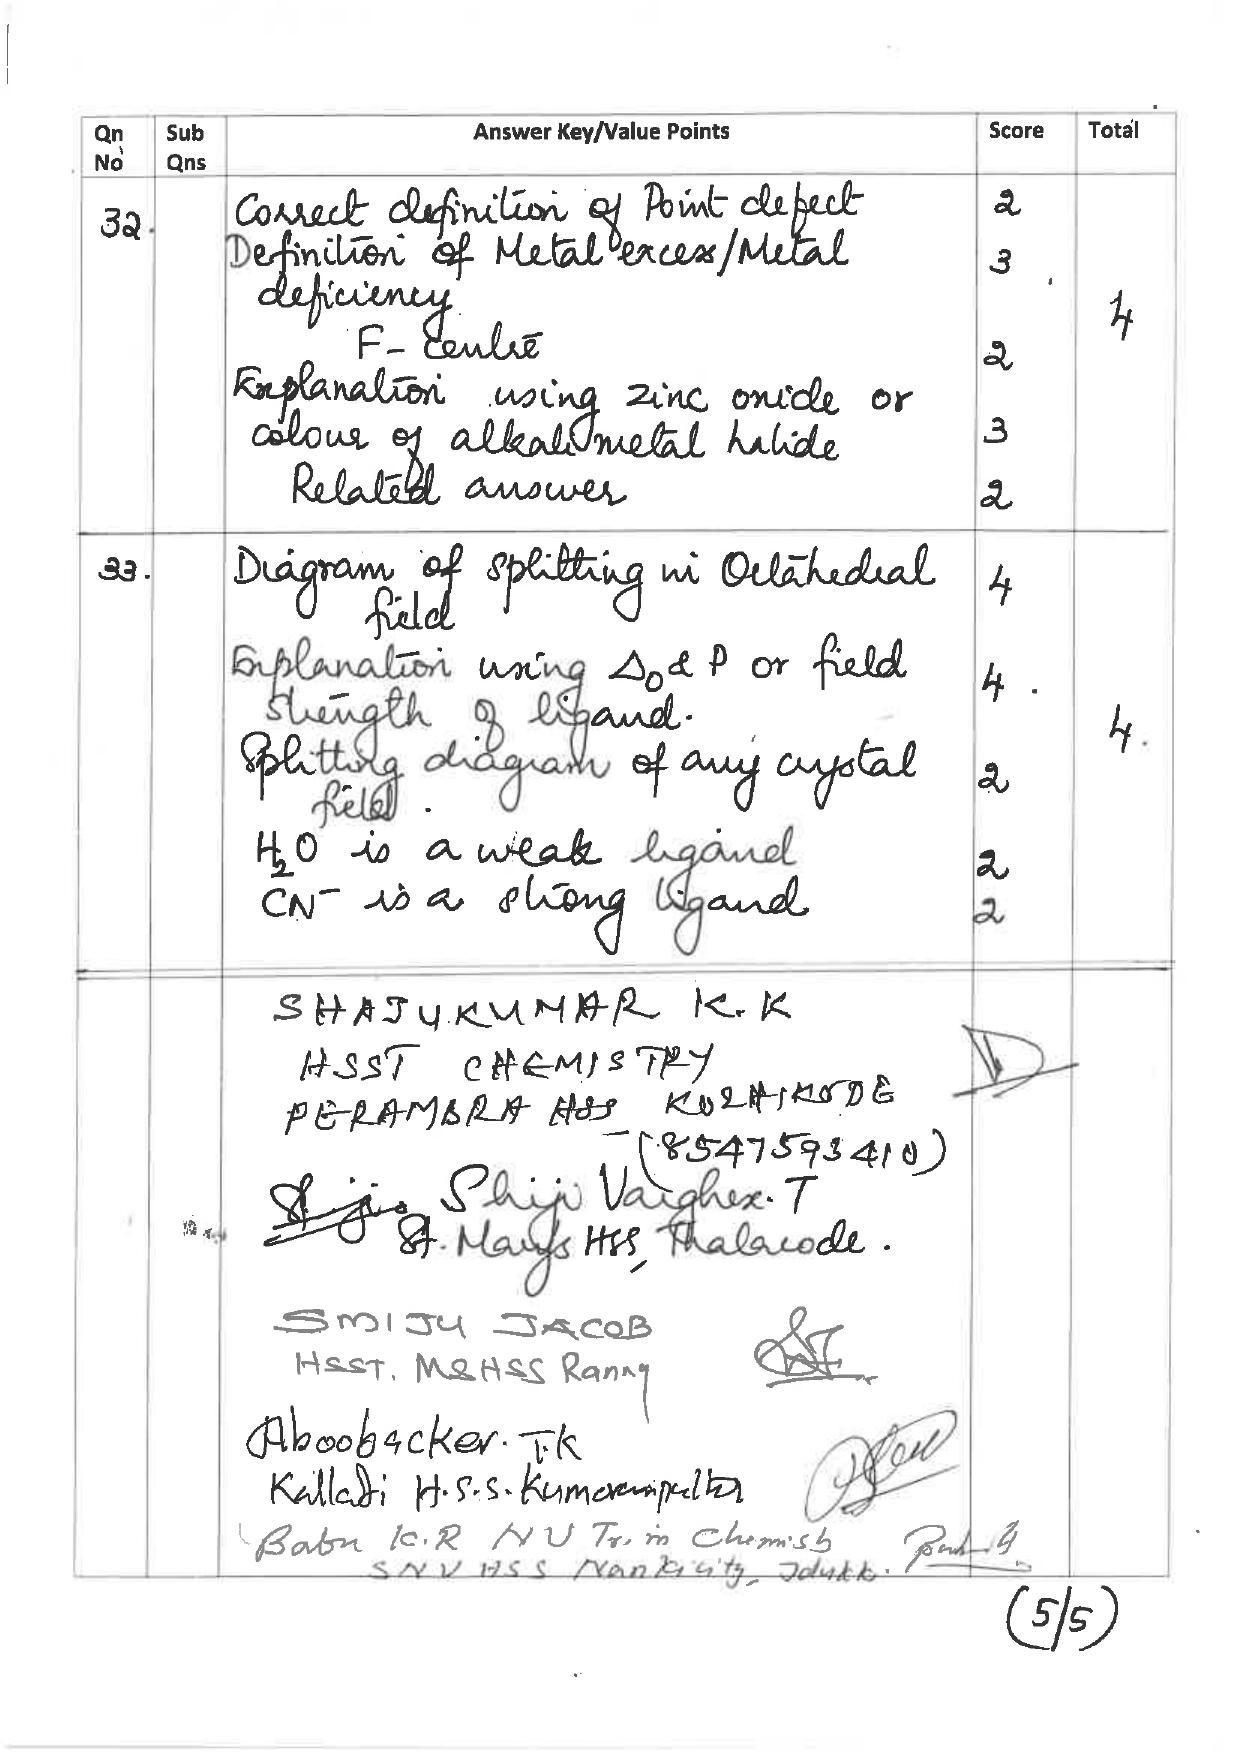 Qn Sub Answer Key/Value Points Score Total
No Qns
32. Correct definition of Point defect 2
Definition of Metal excess/Metal 3
deficiency
4
F- Centre 2
Explanation using zinc oxide or
colour of alkali metal halide 3
Related answer 2
33. Diagram of splitting in Octahedral 4
field
Explanation using Δo & P or field 4.
strength of ligand.
4.
Splitting diagram of any crystal 2
field.
H2O is a weak ligand 2
CN- is a strong ligand 2
SHAJUKUMAR K.K
HSST CHEMISTRY
PERAMBRA HSS KOZHIKODE
-(8547593410)
Shiji Varghese. T
St. Mary's HSS, Thalacode.
SMIJU JACOB
HSST. MSHSS Ranny
Aboobacker. T.K
Kalladi H.S.S.
Babu K.R NV Tr. in
SNV HSS
(5/5)